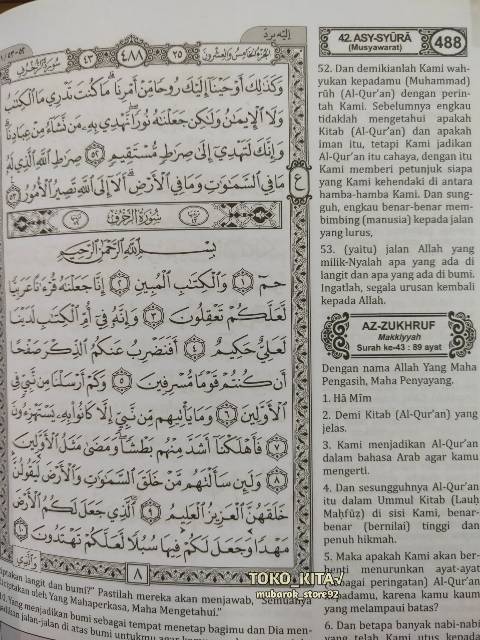 إليه يرد
الجزء الخامس والعشرون
٢٥
٤٨٨
٤٣
سورة الزخرف
وَكَذَٰلِكَ أَوْحَيْنَا إِلَيْكَ رُوحًا مِنْ أَمْرِنَا مَا كُنْتَ تَدْرِي مَا الْكِتَٰبُ
وَلَا الْإِيمَٰنُ وَلَٰكِنْ جَعَلْنَٰهُ نُورًا نَهْدِي بِهِ مَنْ نَشَآءُ مِنْ عِبَادِنَا
وَإِنَّكَ لَتَهْدِي إِلَىٰ صِرَٰطٍ مُسْتَقِيمٍ ٥٢ صِرَٰطِ اللَّهِ الَّذِي لَهُ
مَا فِي السَّمَٰوَٰتِ وَمَا فِي الْأَرْضِ أَلَا إِلَى اللَّهِ تَصِيرُ الْأُمُورُ ٥٣
ع
سورة الزخرف
بِسْمِ اللَّهِ الرَّحْمَٰنِ الرَّحِيمِ
حم ١ وَالْكِتَٰبِ الْمُبِينِ ٢ إِنَّا جَعَلْنَٰهُ قُرْءَٰنًا عَرَبِيًّا
لَعَلَّكُمْ تَعْقِلُونَ ٣ وَإِنَّهُ فِي أُمِّ الْكِتَٰبِ لَدَيْنَا
لَعَلِيٌّ حَكِيمٌ ٤ أَفَنَضْرِبُ عَنْكُمُ الذِّكْرَ صَفْحًا
أَنْ كُنْتُمْ قَوْمًا مُسْرِفِينَ ٥ وَكَمْ أَرْسَلْنَا مِنْ نَبِيٍّ فِي
الْأَوَّلِينَ ٦ وَمَا يَأْتِيهِمْ مِنْ نَبِيٍّ إِلَّا كَانُوا بِهِ يَسْتَهْزِءُونَ
٧ فَأَهْلَكْنَا أَشَدَّ مِنْهُمْ بَطْشًا وَمَضَىٰ مَثَلُ الْأَوَّلِينَ
٨ وَلَئِنْ سَأَلْتَهُمْ مَنْ خَلَقَ السَّمَٰوَٰتِ وَالْأَرْضَ لَيَقُولُنَّ
خَلَقَهُنَّ الْعَزِيزُ الْعَلِيمُ ٩ الَّذِي جَعَلَ لَكُمُ الْأَرْضَ
مَهْدًا وَجَعَلَ لَكُمْ فِيهَا سُبُلًا لَعَلَّكُمْ تَهْتَدُونَ ١٠
وَالَّذِي
٨
42. ASY-SYŪRĀ
(Musyawarat)
488
52. Dan demikianlah Kami wah-
yukan kepadamu (Muhammad)
rūh (Al-Qur'an) dengan perin-
tah Kami. Sebelumnya engkau
tidaklah mengetahui apakah
Kitab (Al-Qur'an) dan apakah
iman itu, tetapi Kami jadikan
Al-Qur'an itu cahaya, dengan itu
Kami memberi petunjuk siapa
yang Kami kehendaki di antara
hamba-hamba Kami. Dan sung-
guh, engkau benar-benar mem-
bimbing (manusia) kepada jalan
yang lurus,
53. (yaitu) jalan Allah yang
milik-Nyalah apa yang ada di
langit dan apa yang ada di bumi.
Ingatlah, segala urusan kembali
kepada Allah.
AZ-ZUKHRUF
Makkiyyah
Surah ke-43 : 89 ayat
Dengan nama Allah Yang Maha
Pengasih, Maha Penyayang.
1. Hā Mīm
2. Demi Kitab (Al-Qur'an) yang
jelas.
3. Kami menjadikan Al-Qur'an
dalam bahasa Arab agar kamu
mengerti.
4. Dan sesungguhnya Al-Qur'an
itu dalam Ummul Kitab (Lauḥ
Maḥfūẓ) di sisi Kami, benar-
benar (bernilai) tinggi dan
penuh hikmah.
5. Maka apakah Kami akan ber-
henti menurunkan ayat-ayat
(sebagai peringatan) Al-Qur'an
kepadamu, karena kamu kaum
yang melampaui batas?
6. Dan betapa banyak nabi-nabi
yang telah Kami utus kepada
langit dan bumi?" Pastilah mereka akan menjawab, "Semuanya
diciptakan oleh Yang Mahaperkasa, Maha Mengetahui."
10. Yang menjadikan bumi sebagai tempat menetap bagimu dan Dia men-
jadikan jalan-jalan di atas bumi untukmu agar kamu
TOKO_KITA√
mubarok_store92